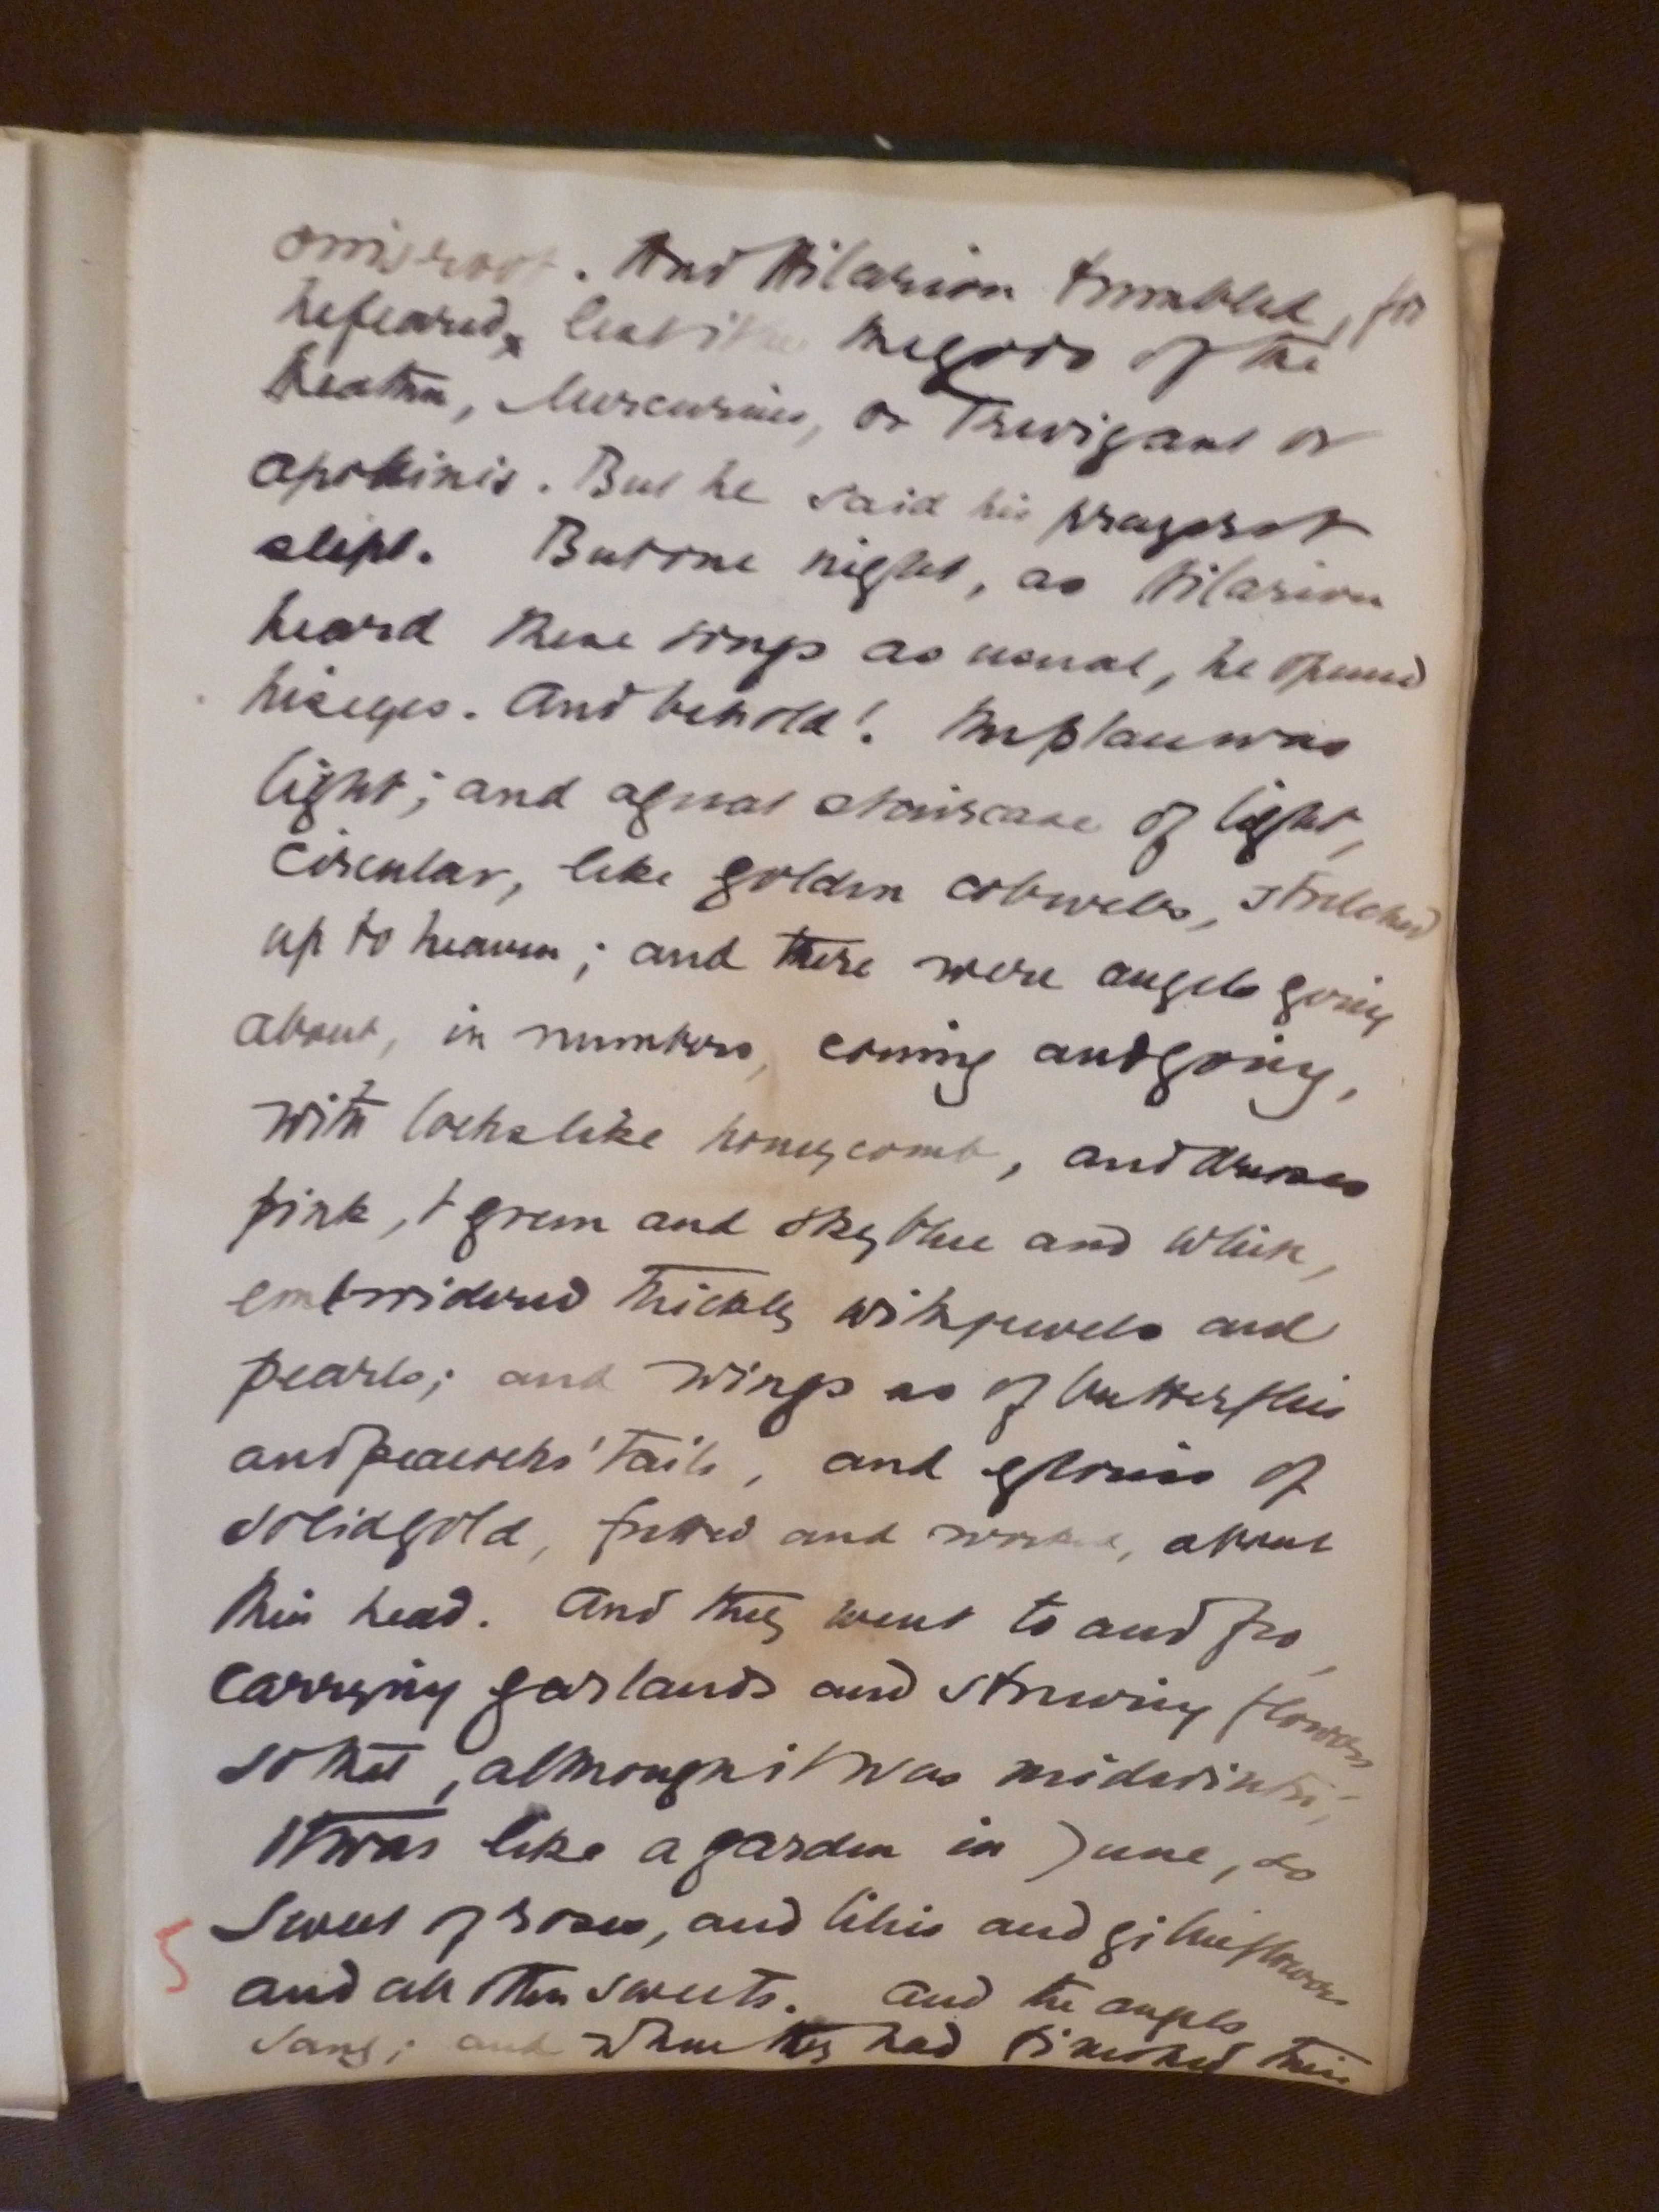 orrisroot. And Hilarion trembled, for
he feared, lest it be the gods of the
heathen, Mercurius, or Trevigant or
apollinis. But he said his prayers &
slept. But one night, as Hilarion
heard these songs as usual, he opened
his eyes. And behold! the place was
light; and a great staircase of light,
circular, like golden cobwebs, stretched
up to heaven; and there were angels going
about, in numbers, coming and going,
with locks like honeycomb, and dresses
pink, & green and sky blue and white,
embroidered thickly with jewels and
pearls; and wings as of butterflies
and peacocks' tails, and glories of
solid gold, fretted and worked, about
their head. And they went to and fro,
carrying garlands and strewing flowers
so that, although it was midwinter,
it was like a garden in June, so
sweet of roses, and lilies and gillieflowers
and all other sweets. And the angels
sang; and when they had finished their